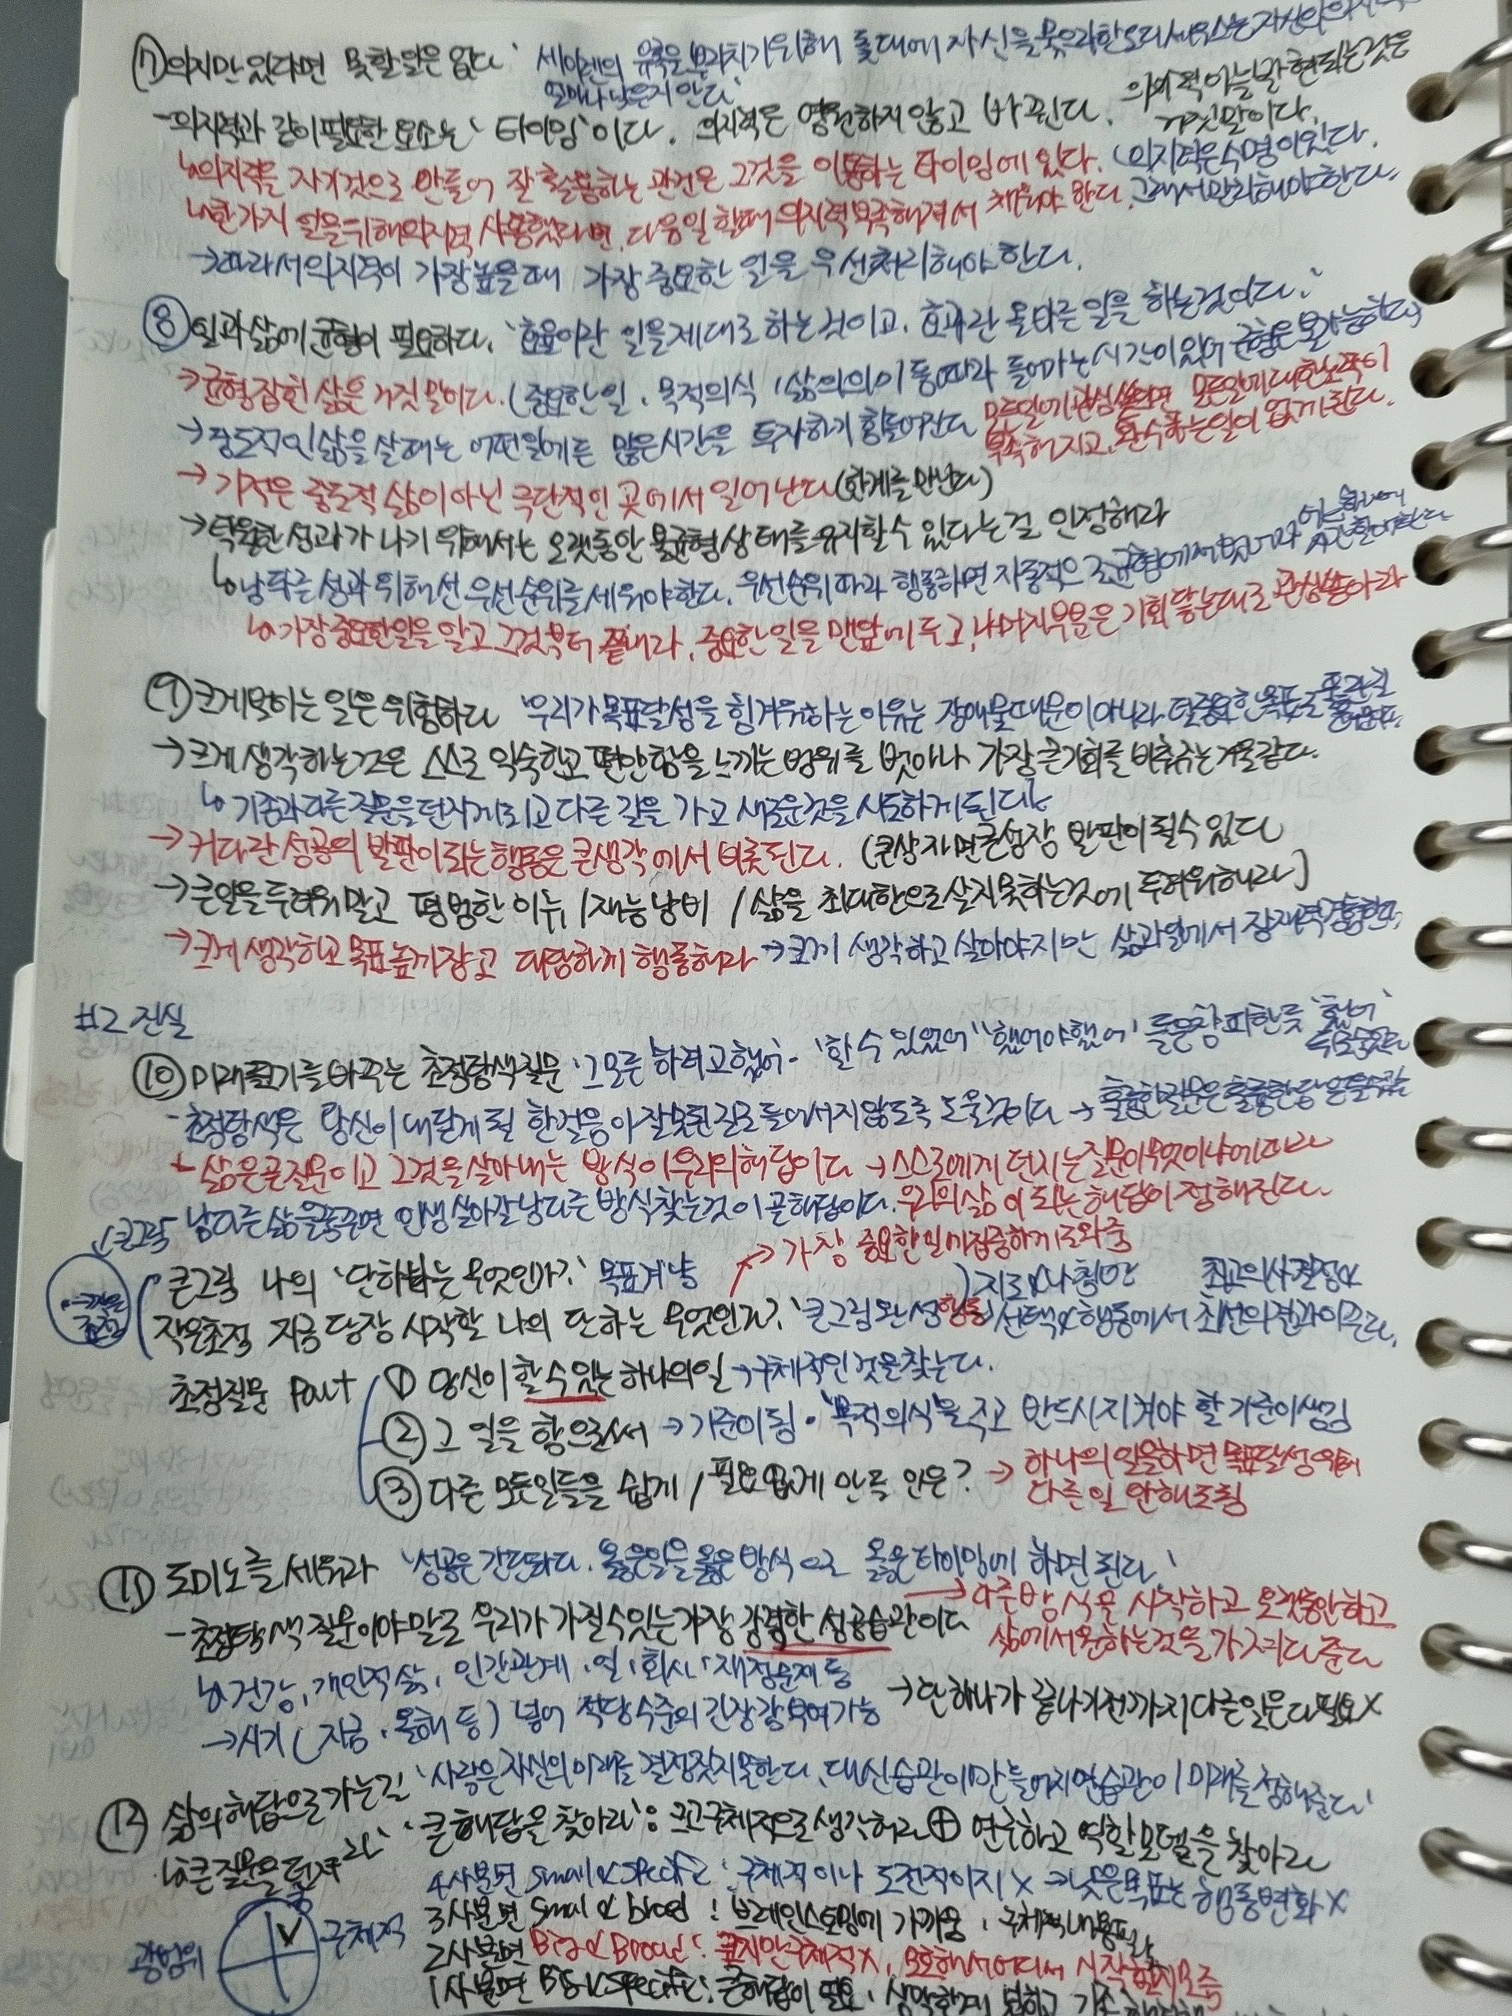 ⑦ 의지만 있다면 못할 일은 없다 '세이렌의 유혹을 뿌리치기 위해 돛대에 자신을 묶으라한 오디세우스는 자신의 의지력
얼마나 낮은지 안다'
- 의지력과 같이 필요한 요소는 '타이밍'이다. 의지력은 영원하지 않고 바뀐다. 의지력이 늘 발현되는 것은
거짓말이다.
↳ 의지력을 자기 것으로 만들어 잘 활용하는 관건은 그것을 이용하는 타이밍에 있다. (의지력은 수명이 있다.
↳ 한가지 일을 위해 의지력 사용했다면, 다음일 할때 의지력 부족해져서 채워야 한다. 그래서 관리해야 한다.
→ 따라서 의지력이 가장 높을 때 가장 중요한 일을 우선처리해야 한다.
⑧ 일과 삶에 균형이 필요하다. '효율이란 일을 제대로 하는 것이고, 효과란 올바른 일을 하는 것이다.'
→ 균형잡힌 삶은 거짓말이다. (중요한 일, 목적의식, 삶의 의미 등 따라 들어가는 시간이 있어 균형은 불가능하다)
→ 중도적인 삶을 살 때는 어떤일에든 많은 시간을 투자하기 힘들어진다 모든일에 관심 쏟으면 모든일에 대한 노력이
부족해지고, 완수하는 일이 없게 된다.
→ 기적은 중도적 삶이 아닌 극단적인 곳에서 일어난다 (한계를 만난다)
→ 탁월한 성과가 나기 위해서는 오랫동안 불균형 상태를 유지할 수 있다는 걸 인정해라
↳ 남다른 성과 위해선 우선순위를 세워야 한다. 우선순위 따라 행동하면 자동적으로 균형에서 벗어나
↳ 가장 중요한 일을 알고 그것부터 끝내라. 중요한 일을 맨앞에 두고, 나머지 부분은 기회 닿는대로 관심 쏟아라
⑨ 크게 벌이는 일은 위험하다 '우리가 목표달성을 힘겨워하는 이유는 장애물 때문이 아니라 덜 중요한 목표로
→ 크게 생각하는 것은 스스로 익숙하고 편안함을 느끼는 범위를 벗어나 가장 큰 기회를 비춰주는 거울 같다.
↳ 기존과 다른 질문을 던지게 되고 다른 길을 가고 새로운 것을 시도하게 된다
→ 커다란 성공의 발판이 되는 행동은 큰생각에서 비롯된다. (큰상자면 큰성장 발판이 될 수 있다
→ 큰일을 두려워 말고 평범한 이뉴 / 재능낭비 / 삶을 최대한으로 살지 못하는 것에 두려워하라)
→ 크게 생각하고 목표 높게 잡고 대담하게 행동해라 → 크게 생각하고 살아야지만 삶과 일에서 잠재력 경험한다
#2 진실
⑩ 미래크기를 바꾸는 초점탐색질문 '그 모든 '하려고 했어', '할 수 있었어' '했어야 했어' 들은 창피한 듯 '했어'
- 초점탐색은 당신이 내딛게 될 한걸음이 잘못된 길로 들어서지 않도록 도울 것이다 → 훌륭한 질문은 훌륭한 답은
↳ 삶은 곧 질문이고 그것을 살아내는 방식이 우리의 해답이다 → 스스로에게 던지는 질문이 무엇이냐에 따라
남다른 삶을 꿈꾸면 인생 살아갈 남다른 방식 찾는 것이 곧 해답이다. 우리의 삶이 되는 해답이 정해진다.
↙큰그림
→ 가장 중요한 일에 집중하게 도와줌
큰그림 나의 '단하나'는 무엇인가?' 목표겨냥 ) 지도 & 나침반 최고 의사결정 &
작은 초점
작은초점 지금 당장 시작할 나의 단하나는 무엇인가?' 큰그림 완성 행동 선택 & 행동에서 최선의 결과 이룬다.
초점질문 Part ① 당신이 할 수 있는 하나의 일 → 구체적인 것을 찾는다.
② 그 일을 함으로써 → 기준이 됨. '목적의식'을 주고 반드시 지켜야 할 기준이 생김
③ 다른 모든일들을 쉽게 / 필요없게 만들 일은? → 하나의 일을 하면 목표달성 위해
다른일 안해도 됨
⑪ 도미노를 세워라 '성공은 간단하다. 옳은일을 옳은 방식으로 옳은 타이밍에 하면 된다.'
→ 다른 방식을 시작하고 오랫동안 하고
- 초점탐색질문이야말로 우리가 가질 수 있는 가장 강력한 성공습관이다
삶에서 원하는 것을 가져다 준다
↳ 건강, 개인적 삶, 인간관계, 일, 회사, 재정문제 등
→ 시기 (지금, 올해 등) 넣어 적당수준의 긴장감 부여가능 → 단 하나가 끝나기 전까지 다른일은 다 필요 X
⑫ 삶의 해답으로 가는 길 '사람은 자신의 미래를 결정짓지 못한다. 대신 습관이 만들어지면 습관이 미래를 정해준다'
↳ 큰질문을 던져라 '큰 해답을 찾아라': 크고 구체적으로 생각하라 ⊕ 연구하고 역할모델을 찾아라
4사분면 Small & Specific: 구체적이나 도전적이지 X → 낮은 목표는 행동변화 X
3사분면 Small & broad: 브레인스토밍에 가까움, 구체적
광범위 구체적
2사분면 Big & Broad: 크지만 구체적 X, 모호해서 어디서 시작할지 모름
1사분면 Big & Specific: 큰해답이 필요,